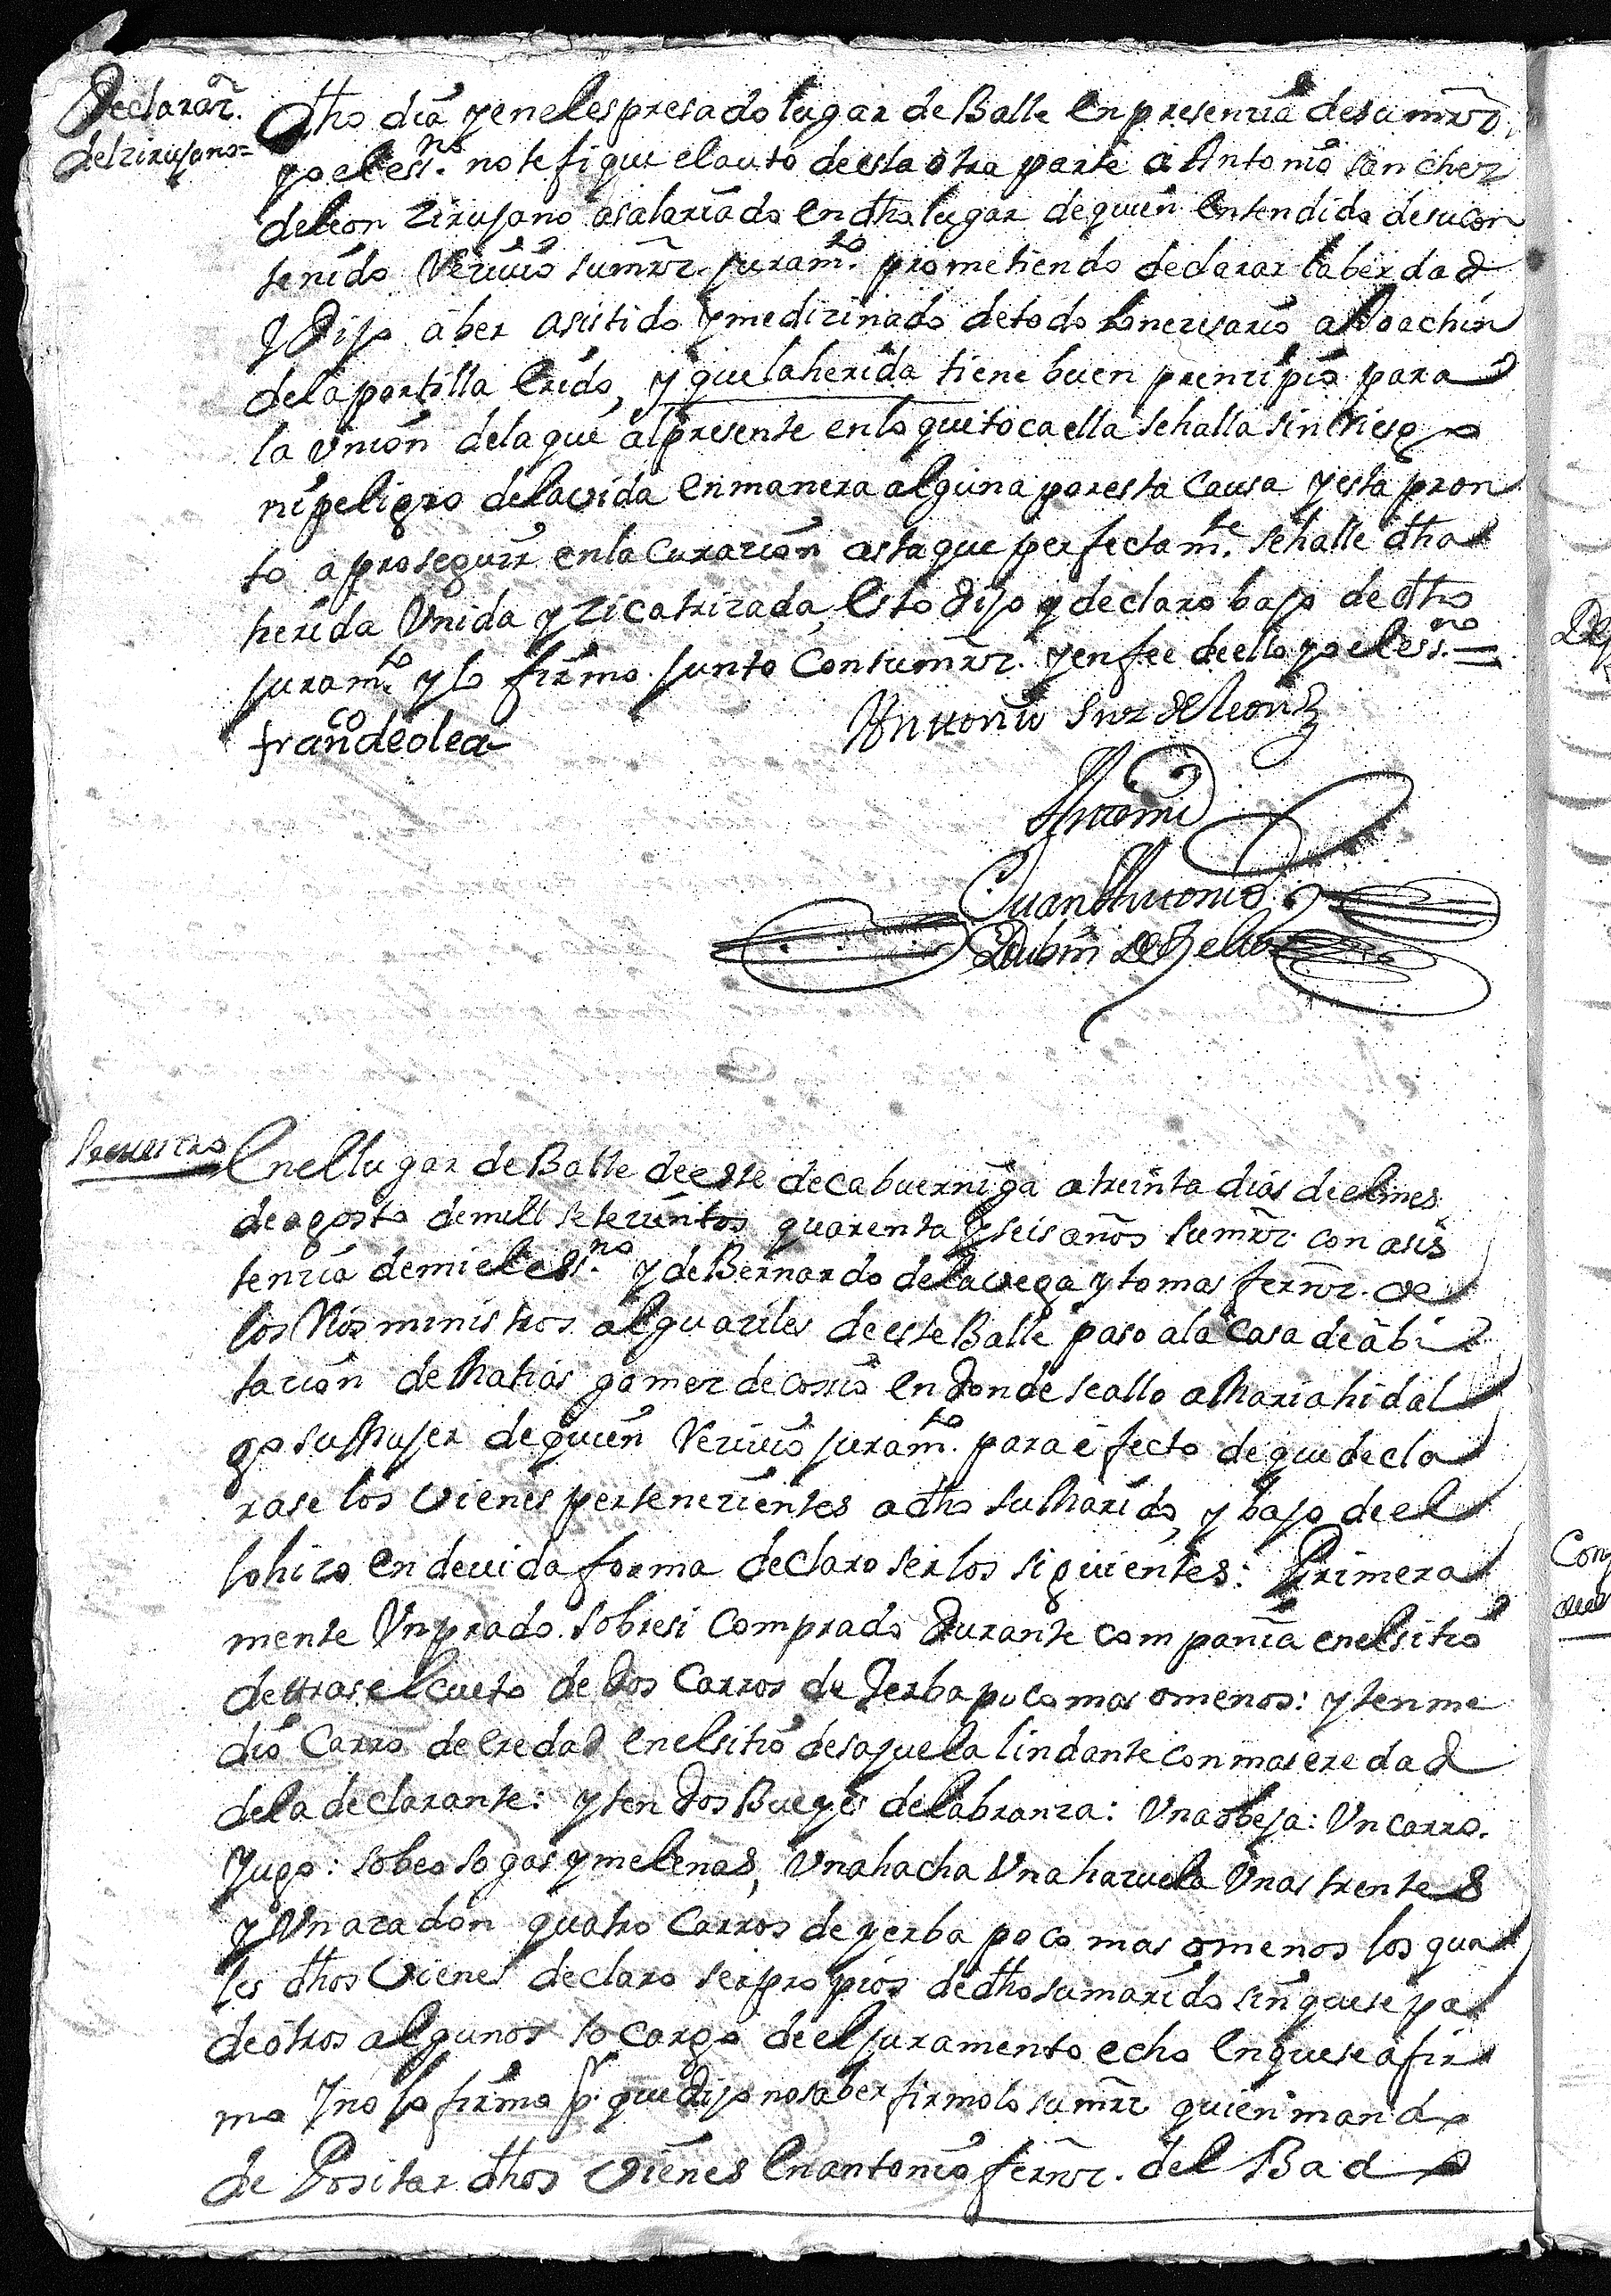 Declaraz.ⁿ
del zirujano=
Dho dia y en el espresado lugar de Balle en presenzia de su mrz.
yo el ess.no notefique el auto de esta otra parte a Antonio sanchez
de leon zirujano asalariado en dho lugar de quien entendido de su con
tenido Rezivio su mrz. juram.to prometiendo declarar la berdad
y Dijo aber asistido y medizinado de todo lo nezesario a Joachin
de la portilla erido, y que la herida tiene buen prenzipio para
la vnion de la que al presente en lo que toca ella se halla sin riesgo
ni peligro de la vida en manera alguna por esta Causa y esta pron
to a proseguir en la Curazion asta que perfectam.te se halle dha
herida Vnida y zicatrizada, esto dijo y declaro bajo de dho
juram.to y lo firmo junto Con su mrz. y en fee de ello yo el ess.no =
fran.co de olea
Anttonio Snz de leon
Antte mi
Juan Antonio
Rubin de Zelis
Secuestro
En el lugar de Balle de este de cabuerniga a treinta dias de el mes
de agosto de mill setezientos quarenta y seis años su mrz. con asis
tenzia de mi el ess.no y de Bernardo de la vega y tomas fernz. de
los Rios ministros alguaziles de este Balle paso a la casa de abi
tazion de Mathias gomez de cosio en donde se allo a Maria hidal
go su Mujer de quien Rezivio juram.to para efecto de que decla
rase los vienes pertenezientes a dho su Marido, y bajo de el
lo hizo en devida forma declaro ser los siguientes: Primera
mente Vn prado sobre si Comprado Durante compañia en el sitio
de tras el cueto de Dos Carros de Yerba poco mas o menos: yten me
dio Carro de eredad en el sitio de sajuela lindante con mas eredad
de la declarante: yten Dos Bueyes de labranza: Vna obeja: Vn carro.
Yugo: sobeo sogas y melenas, Vna hacha Vna hazuela Vnas trentes
y Vn azadon quatro Carros de yerba poco mas o menos los qua
les dhos Vienes declaro ser propios de dho su marido sin que sepa
de otros algunos so cargo de el juramento echo en que se afir
mo Y no lo firmo p.r que Dijo no saber firmolo su mrz quien mando
de Positar dhos Vienes en antonio fernz. del Bado